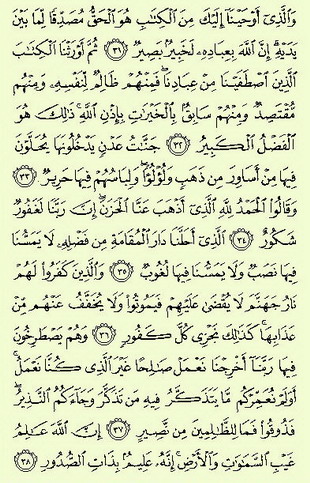 وَالَّذِي أَوْحَيْنَا إِلَيْكَ مِنَ الْكِتَابِ هُوَ الْحَقُّ مُصَدِّقًا لِّمَا بَيْنَ
يَدَيْهِ ۗ إِنَّ اللَّهَ بِعِبَادِهِ لَخَبِيرٌ بَصِيرٌ ٣١ ثُمَّ أَوْرَثْنَا الْكِتَابَ
الَّذِينَ اصْطَفَيْنَا مِنْ عِبَادِنَا ۖ فَمِنْهُمْ ظَالِمٌ لِّنَفْسِهِ وَمِنْهُم
مُّقْتَصِدٌ وَمِنْهُمْ سَابِقٌ بِالْخَيْرَاتِ بِإِذْنِ اللَّهِ ۚ ذَٰلِكَ هُوَ
الْفَضْلُ الْكَبِيرُ ٣٢ جَنَّاتُ عَدْنٍ يَدْخُلُونَهَا يُحَلَّوْنَ
فِيهَا مِنْ أَسَاوِرَ مِن ذَهَبٍ وَلُؤْلُؤًا ۖ وَلِبَاسُهُمْ فِيهَا حَرِيرٌ ٣٣
وَقَالُوا الْحَمْدُ لِلَّهِ الَّذِي أَذْهَبَ عَنَّا الْحَزَنَ ۖ إِنَّ رَبَّنَا لَغَفُورٌ
شَكُورٌ ٣٤ الَّذِي أَحَلَّنَا دَارَ الْمُقَامَةِ مِن فَضْلِهِ لَا يَمَسُّنَا
فِيهَا نَصَبٌ وَلَا يَمَسُّنَا فِيهَا لُغُوبٌ ٣٥ وَالَّذِينَ كَفَرُوا لَهُمْ
نَارُ جَهَنَّمَ لَا يُقْضَىٰ عَلَيْهِمْ فَيَمُوتُوا وَلَا يُخَفَّفُ عَنْهُم مِّنْ
عَذَابِهَا ۚ كَذَٰلِكَ نَجْزِي كُلَّ كَفُورٍ ٣٦ وَهُمْ يَصْطَرِخُونَ
فِيهَا رَبَّنَا أَخْرِجْنَا نَعْمَلْ صَالِحًا غَيْرَ الَّذِي كُنَّا نَعْمَلُ ۚ
أَوَلَمْ نُعَمِّرْكُم مَّا يَتَذَكَّرُ فِيهِ مَن تَذَكَّرَ وَجَاءَكُمُ النَّذِيرُ ۖ
فَذُوقُوا فَمَا لِلظَّالِمِينَ مِن نَّصِيرٍ ٣٧ إِنَّ اللَّهَ عَالِمُ
غَيْبِ السَّمَاوَاتِ وَالْأَرْضِ ۚ إِنَّهُ عَلِيمٌ بِذَاتِ الصُّدُورِ ٣٨